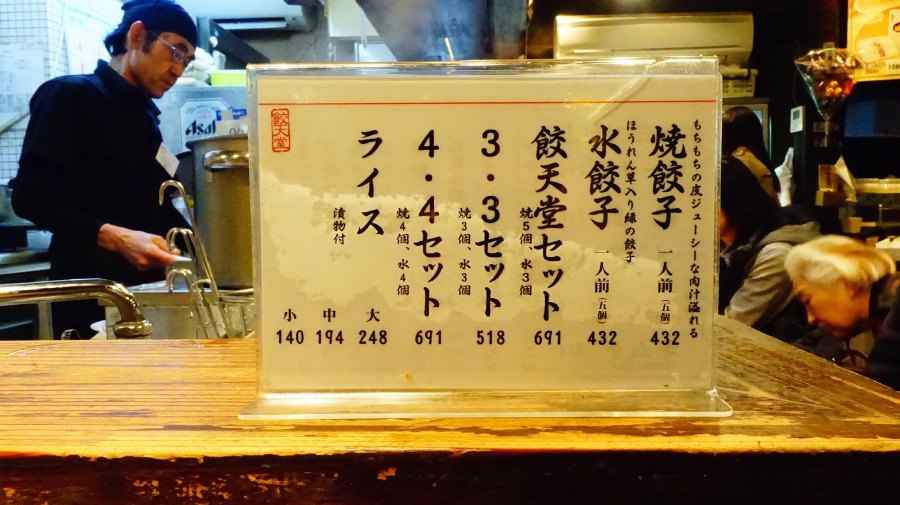 もちもちの皮ジューシーな肉汁溢れる
焼餃子 一人前(五個) 432
ほうれん草入り緑の餃子
水餃子 一人前(五個) 432
餃天堂セット 焼5個、水3個 691
3・3セット 焼3個、水3個 518
4・4セット 焼4個、水4個 691
ライス 漬物付
大 248
中 194
小 140
餃天堂
Asahi